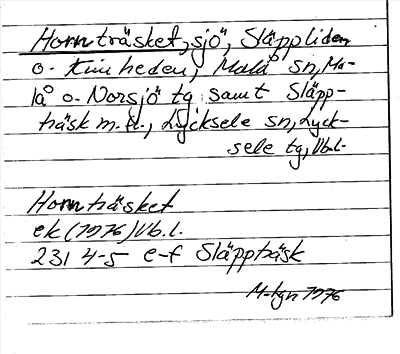 Hornträsket, sjö, Släppliden
o. Kinnheden, Malå sn, Ma-
lå o. Norsjö tg samt Släpp-
träsk m.fl., Lycksele sn, Lyck-
sele tg, Vb.l.
Hornträsket
ek (1976) Vb.l.
231 4-5 e-f Släppträsk
M-kgn 1976